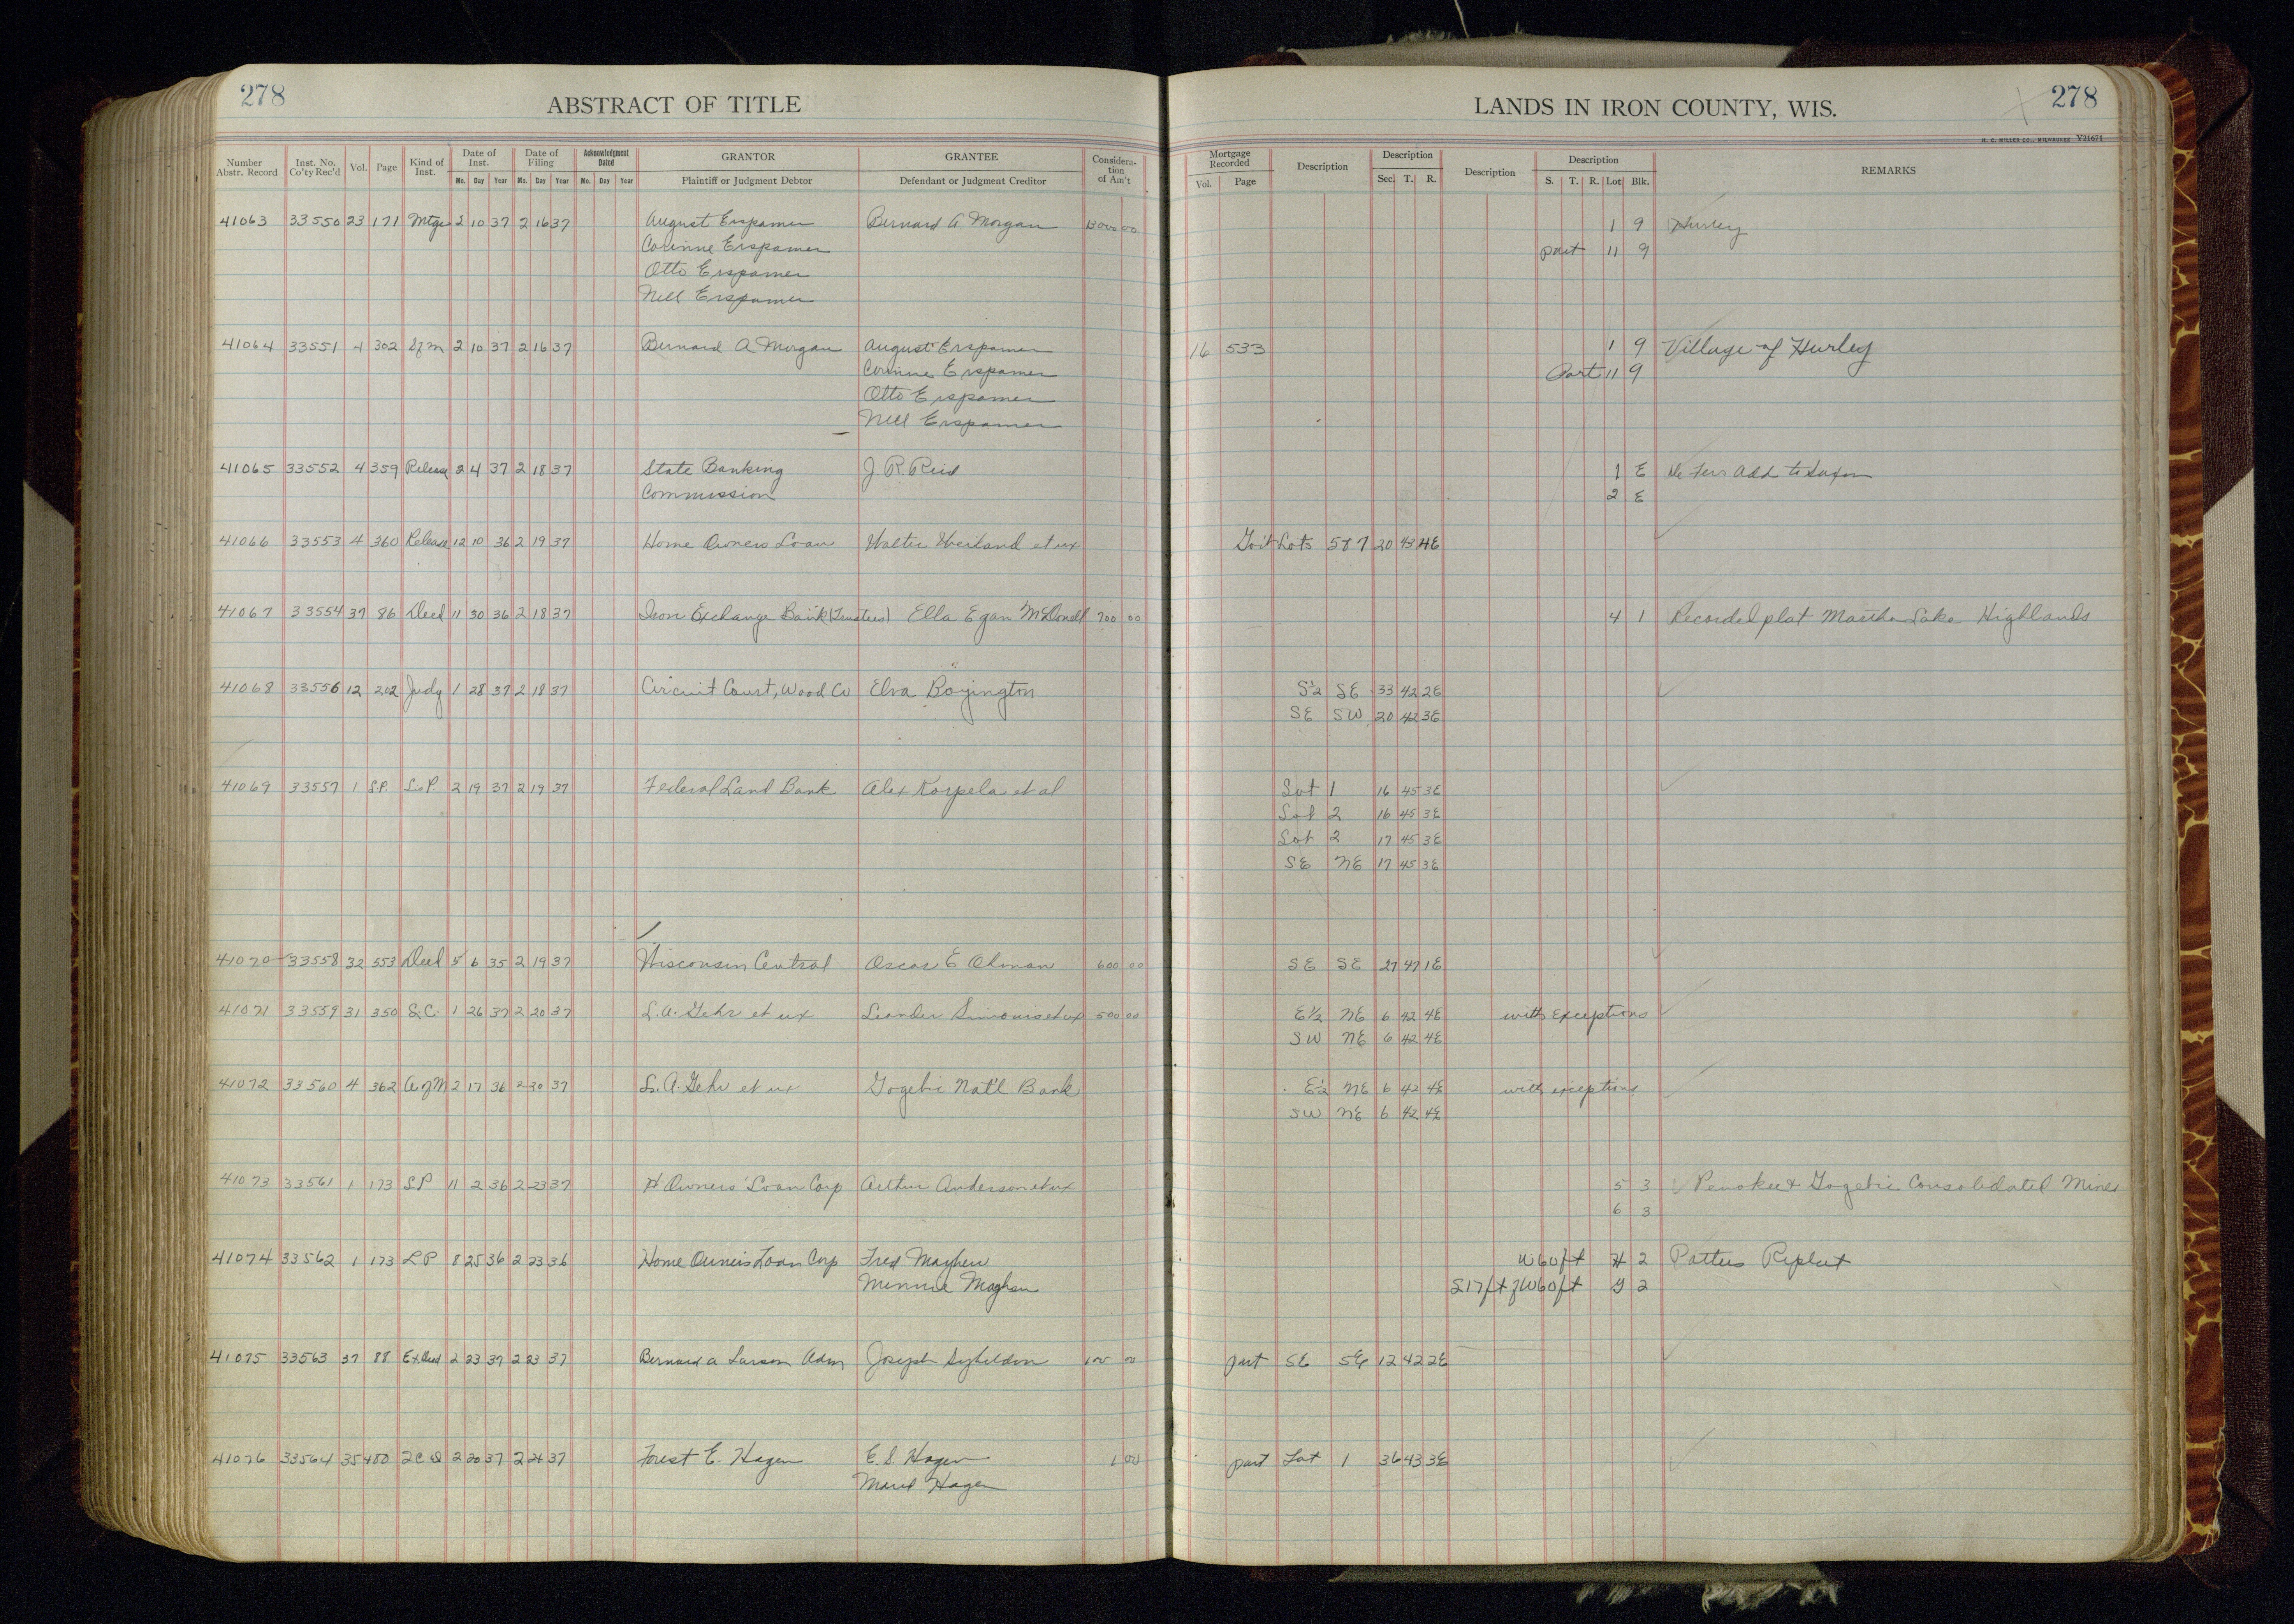 278
ABSTRACT OF TITLE
LANDS IN IRON COUNTY, WIS.
278
H. C. MILLER CO., MILWAUKEE V31671
Number Abstr. Record Inst. No. Co'ty Rec'd Vol. Page Kind of Inst. Date of Inst. Mo. Day Year Date of Filing Mo. Day Year Acknowledgment Dated Mo. Day Year GRANTOR Plaintiff or Judgment Debtor GRANTEE Defendant or Judgment Creditor Considera-tion of Am't
Mortgage Recorded Vol. Page Description Description Sec. T. R. Description Description S. T. R. Lot Blk. REMARKS
41063 33550 23 171 Mtge 2 10 37 2 16 37 August Erspamer Bernard A. Morgan 13000 00 1 9 Hurley
Corinne Erspamer part 11 9
Otto Erspamer
Nell Erspamer
41064 33551 4 302 2 10 37 2 16 37 Bernard A Morgan August Erspamer 16 533 1 9 Village of Hurley
Corinne Erspamer Part 11 9
Otto Erspamer
Nell Erspamer
41065 33552 4 359 Release 2 4 37 2 18 37 State Banking J. R. Reid 1 E Add to Saxon
Commission 2 E
41066 33553 4 360 Release 12 10 36 2 19 37 Home Owners Loan Walter Weiland et ux Gov't Lots 5 & 7 20 43 4E
41067 33554 37 86 Deed 11 30 36 2 18 37 Iron Exchange Bank (Trustees) Ella Egan McDonell 700 00 4 1 Recorded plat Martha Lake Highlands
41068 33556 12 202 Judg 1 28 37 2 18 37 Circuit Court, Wood Co Elva Boyington S½ SE 33 42 2E
SE SW 20 42 3E
41069 33557 1 S.P. L.P. 2 19 37 2 19 37 Federal Land Bank Alex Korpela et al Lot 1 16 45 3E
Lot 2 16 45 3E
Lot 2 17 45 3E
SE NE 17 45 3E
41070 33558 32 553 Deed 5 6 35 2 19 37 Wisconsin Central Oscar E Ohman 600 00 SE SE 27 47 1E
41071 33559 31 350 L.C. 1 26 37 2 20 37 L. A. Gehr et ux Leander Simonis et ux 500 00 E½ NE 6 42 4E with exceptions
SW NE 6 42 4E
41072 33560 4 362 A of M 2 17 36 2 20 37 L. A. Gehr et ux Gogebic Nat'l Bank E½ NE 6 42 4E with exceptions
SW NE 6 42 4E
41073 33561 1 173 L P 11 2 36 2 23 37 H Owners' Loan Corp Arthur Anderson et ux 5 3 Penokee & Gogebic Consolidated Mines
6 3
41074 33562 1 173 L P 8 25 36 2 23 36 Home Owners Loan Corp Fred Mayhew W 60 ft H 2 Pattees Replat
Minnie Mayhew S 17 ft of W 60 ft G 2
41075 33563 37 88 Ex. Deed 2 23 37 2 23 37 Bernard A Larson Adm Joseph 100 00 part SE SE 12 42 2E
41076 33564 35 480 2 C D 2 20 37 2 24 37 Forest E. Hagen E. S. Hagen 1 00 part Lot 1 36 43 3E
Hagen